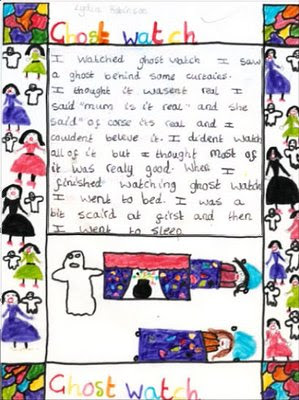 Lydia Robinson
Ghost watch
I watched ghost watch I saw
a ghost behind some curtains.
I thought it wasent real I
said "mum is it real" and she
said" of corse its real and I
couldent beleve it. I dident watch
all of it but I thought most of
it was really good. When I
finished watching ghost watch
I went to bed. I was a
bit scaird at first and then
I went to sleep
Ghost watch